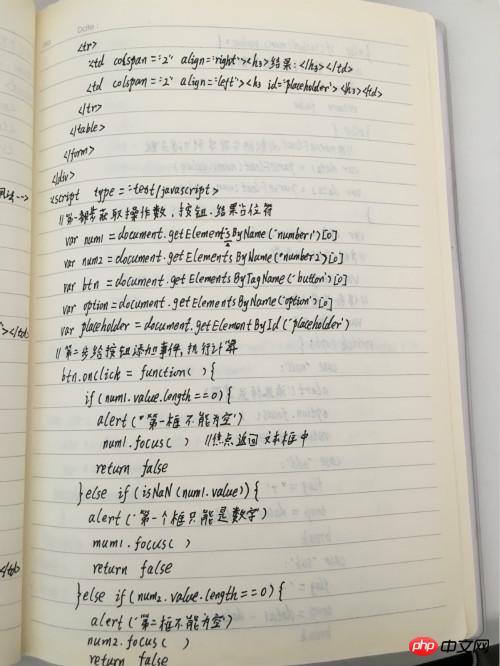 Date:
<tr>
<td colspan="2" align="right"><h3>结果:</h3></td>
<td colspan="2" align="left"><h3 id="placeholder"></h3><td>
</tr>
</table>
</form>
</div>
<script type="test/javascript>
//第一步获取操作数,按钮.结果占位符
var num1=document.getElementsByName("number1")[0]
var num2=document.getElementsByName("number2")[0]
var btn =document.getElementsByTagName("button")[0]
var option=document.getElementsByName("option")[0]
var placeholder = document.getElementById("placeholder")
//第二步给按钮添加事件,执行计算
btn.onclick = function( ){
if(num1.value.length==0){
alert("第一框不能为空")
num1.focus( ) //焦点返回文本框中
return false
}else if(isNaN(num1.value)){
alert("第一个框只能是数字")
mum1.focus( )
return false
}else if(num2.value.length==0){
alert("第二框不能为空")
num2.focus( )
return false
"></td>
</td>
php 中文网